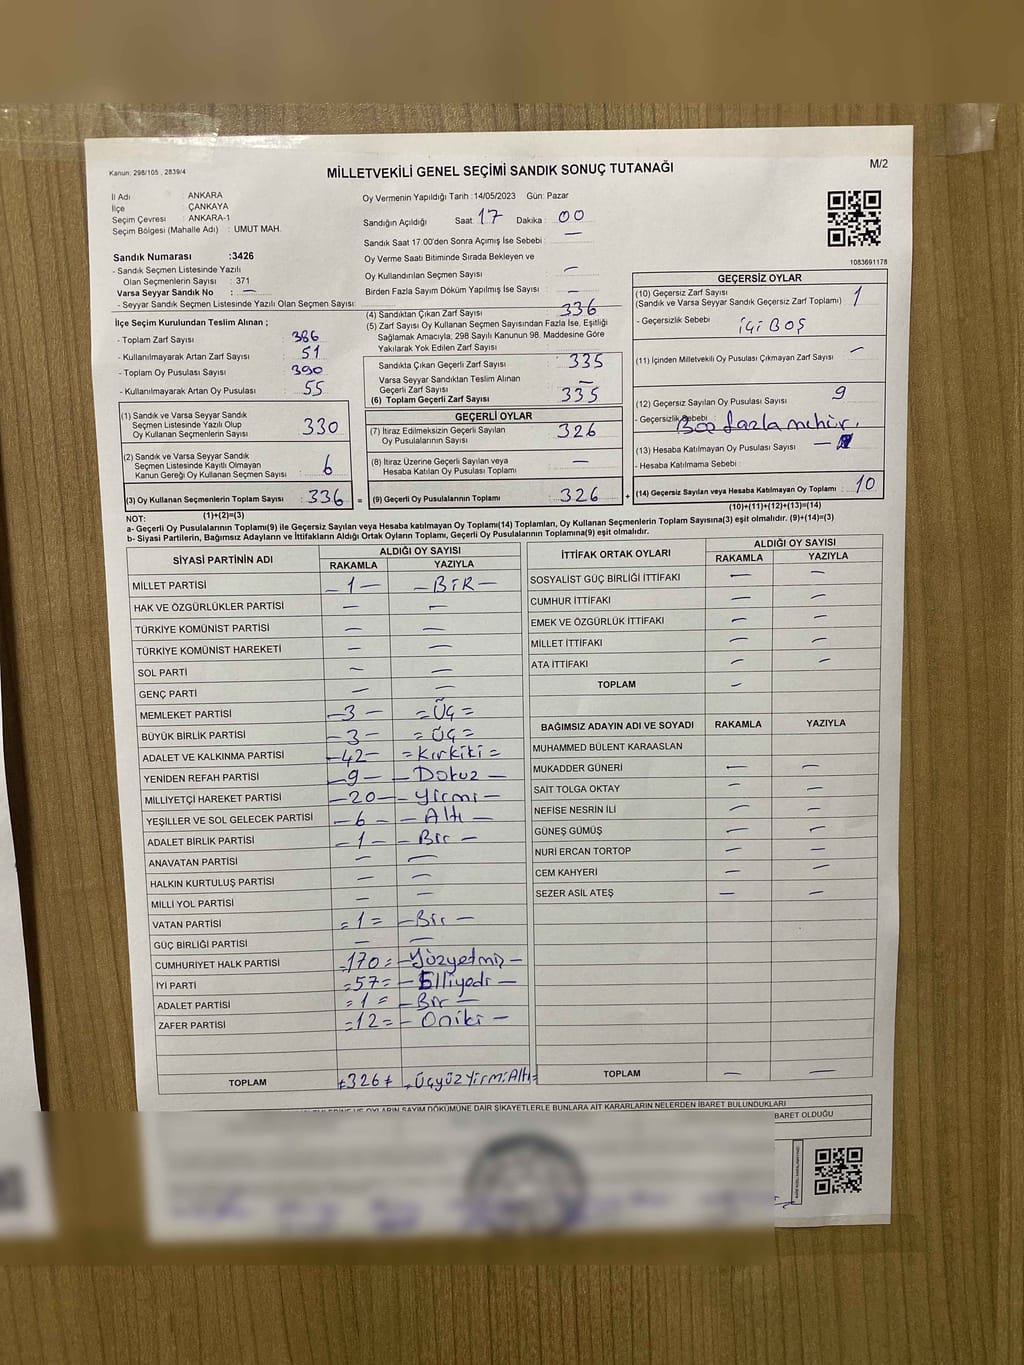 Kanun: 298/105 , 2839/4
MİLLETVEKİLİ GENEL SEÇİMİ SANDIK SONUÇ TUTANAĞI
M/2
İl Adı : ANKARA
İlçe : ÇANKAYA
Seçim Çevresi : ANKARA-1
Seçim Bölgesi (Mahalle Adı) : UMUT MAH.
Sandık Numarası :3426
- Sandık Seçmen Listesinde Yazılı
Olan Seçmenlerin Sayısı : 371
Varsa Seyyar Sandık No : —
- Seyyar Sandık Seçmen Listesinde Yazılı Olan Seçmen Sayısı:
Oy Vermenin Yapıldığı Tarih :14/05/2023 Gün: Pazar
Sandığın Açıldığı Saat: 17 Dakika : 00
Sandık Saat 17:00'den Sonra Açımış İse Sebebi : —
Oy Verme Saati Bitiminde Sırada Bekleyen ve
Oy Kullandırılan Seçmen Sayısı : —
Birden Fazla Sayım Döküm Yapılmış İse Sayısı : —
1083691178
İlçe Seçim Kurulundan Teslim Alınan ;
- Toplam Zarf Sayısı : 386
- Kullanılmayarak Artan Zarf Sayısı : 51
- Toplam Oy Pusulası Sayısı : 390
- Kullanılmayarak Artan Oy Pusulası : 55
(1) Sandık ve Varsa Seyyar Sandık
Seçmen Listesinde Yazılı Olup
Oy Kullanan Seçmenlerin Sayısı : 330
(2) Sandık ve Varsa Seyyar Sandık
Seçmen Listesinde Kayıtlı Olmayan
Kanun Gereği Oy Kullanan Seçmen Sayısı : 6
(3) Oy Kullanan Seçmenlerin Toplam Sayısı : 336 =
(1)+(2)=(3)
(4) Sandıktan Çıkan Zarf Sayısı : 336
(5) Zarf Sayısı Oy Kullanan Seçmen Sayısından Fazla İse, Eşitliği
Sağlamak Amacıyla; 298 Sayılı Kanunun 98. Maddesine Göre
Yakılarak Yok Edilen Zarf Sayısı : —
Sandıkta Çıkan Geçerli Zarf Sayısı : 335
Varsa Seyyar Sandıktan Teslim Alınan
Geçerli Zarf Sayısı : —
(6) Toplam Geçerli Zarf Sayısı : 335
GEÇERLİ OYLAR
(7) İtiraz Edilmeksizin Geçerli Sayılan
Oy Pusulalarının Sayısı : 326
(8) İtiraz Üzerine Geçerli Sayılan veya
Hesaba Katılan Oy Pusulası Toplamı : —
(9) Geçerli Oy Pusulalarının Toplamı : 326 +
GEÇERSİZ OYLAR
(10) Geçersiz Zarf Sayısı
(Sandık ve Varsa Seyyar Sandık Geçersiz Zarf Toplamı) : 1
- Geçersizlik Sebebi : içi BOŞ
(11) İçinden Milletvekili Oy Pusulası Çıkmayan Zarf Sayısı : —
(12) Geçersiz Sayılan Oy Pusulası Sayısı : 9
- Geçersizlik Sebebi : fazla mühür.
(13) Hesaba Katılmayan Oy Pusulası Sayısı : —
- Hesaba Katılmama Sebebi :
(14) Geçersiz Sayılan veya Hesaba Katılmayan Oy Toplamı : 10
(10)+(11)+(12)+(13)=(14)
NOT:
a- Geçerli Oy Pusulalarının Toplamı(9) ile Geçersiz Sayılan veya Hesaba katılmayan Oy Toplamı(14) Toplamları, Oy Kullanan Seçmenlerin Toplam Sayısına(3) eşit olmalıdır. (9)+(14)=(3)
b- Siyasi Partilerin, Bağımsız Adayların ve İttifakların Aldığı Ortak Oyların Toplamı, Geçerli Oy Pusulalarının Toplamına(9) eşit olmalıdır.
SİYASİ PARTİNİN ADI ALDIĞI OY SAYISI
RAKAMLA YAZIYLA
MİLLET PARTİSİ — 1 — — BİR —
HAK VE ÖZGÜRLÜKLER PARTİSİ — —
TÜRKİYE KOMÜNİST PARTİSİ — —
TÜRKİYE KOMÜNİST HAREKETİ — —
SOL PARTİ — —
GENÇ PARTİ — —
MEMLEKET PARTİSİ — 3 — = Üç =
BÜYÜK BİRLİK PARTİSİ — 3 — = Üç =
ADALET VE KALKINMA PARTİSİ — 42 — = Kırkiki =
YENİDEN REFAH PARTİSİ — 9 — — Dokuz —
MİLLİYETÇİ HAREKET PARTİSİ — 20 — — Yirmi —
YEŞİLLER VE SOL GELECEK PARTİSİ — 6 — — Altı —
ADALET BİRLİK PARTİSİ — 1 — — Bir —
ANAVATAN PARTİSİ — —
HALKIN KURTULUŞ PARTİSİ — —
MİLLİ YOL PARTİSİ — —
VATAN PARTİSİ = 1 = — Bir —
GÜÇ BİRLİĞİ PARTİSİ — —
CUMHURİYET HALK PARTİSİ = 170 = — Yüzyetmiş —
İYİ PARTİ = 57 = — Elliyedi —
ADALET PARTİSİ = 1 = — Bir —
ZAFER PARTİSİ = 12 = — Oniki —
TOPLAM +326+ = ÜçyüzYirmiAltı=
İTTİFAK ORTAK OYLARI ALDIĞI OY SAYISI
RAKAMLA YAZIYLA
SOSYALİST GÜÇ BİRLİĞİ İTTİFAKI — —
CUMHUR İTTİFAKI — —
EMEK VE ÖZGÜRLÜK İTTİFAKI — —
MİLLET İTTİFAKI — —
ATA İTTİFAKI — —
TOPLAM —
BAĞIMSIZ ADAYIN ADI VE SOYADI RAKAMLA YAZIYLA
MUHAMMED BÜLENT KARAASLAN
MUKADDER GÜNERİ — —
SAİT TOLGA OKTAY — —
NEFİSE NESRİN İLİ — —
GÜNEŞ GÜMÜŞ — —
NURİ ERCAN TORTOP — —
CEM KAHYERİ — —
SEZER ASİL ATEŞ — —
TOPLAM — —
VE OYLARIN SAYIM DÖKÜMÜNE DAİR ŞİKAYETLERLE BUNLARA AİT KARARLARIN NELERDEN İBARET BULUNDUKLARI
BARET OLDUĞU